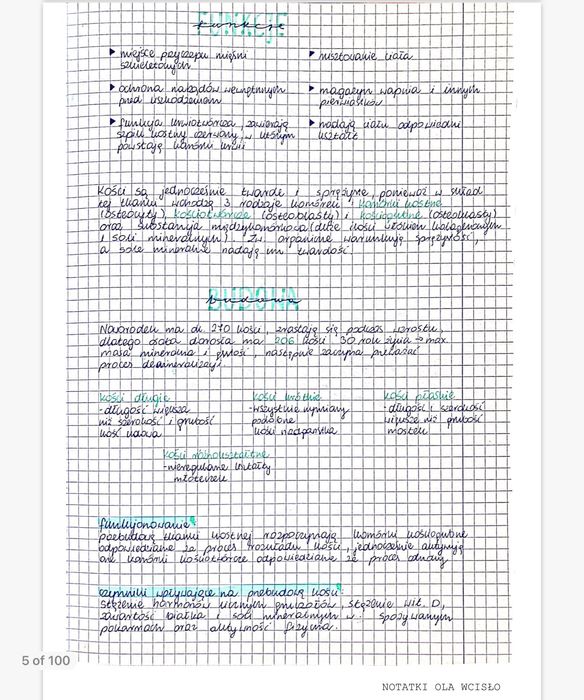 FUNKCJE
funkcje
miejsce przyczepu mięśni
szkieletowych
rusztowanie ciała
ochrona narządów wewnętrznych
przed uszkodzeniem
magazyn wapnia i innych
pierwiastków
funkcja krwiotwórcza, zawierają
szpik kostny czerwony, w którym
powstają komórki krwi
nadają ciału odpowiedni
kształt
Kości są jednocześnie twarde i sprężyste, ponieważ w skład
tej tkanki wchodzą 3 rodzaje komórek: komórki kostne
(osteocyty), kościotwórcze (osteoblasty) i kościogubne (osteoklasty)
oraz substancja międzykomórkowa (duże ilości włókien kolagenowych
i soli mineralnych). Zw. organiczne warunkują sprężystość,
a sole mineralne nadają im twardość.
BUDOWA
budowa
Noworodek ma ok. 270 kości, zrastają się podczas wzrostu,
dlatego osoba dorosła ma 206 kości. 30 rok życia → max
masa mineralna i gęstość, następnie zaczyna przeważać
proces demineralizacji
kości długie
- długość większa
niż szerokość i grubość
kość udowa
kości krótkie
- wszystkie wymiary
podobne
kości nadgarstka
kości płaskie
- długość i szerokość
większe niż grubość
mostek
kości różnokształtne
- nieregularne kształty
młoteczek
funkcjonowanie
przebudowę tkanki kostnej rozpoczynają komórki kościogubne
odpowiedzialne za proces rozkładu kości, jednocześnie aktywują
one komórki kościotwórcze odpowiedzialne za proces odnowy
czynniki wpływające na przebudowę kości:
stężenie hormonów różnych gruczołów, stężenie wit. D,
zawartość białka i soli mineralnych w spożywanym
pokarmach oraz aktywność fizyczna.
5 of 100
NOTATKI OLA WCISŁO